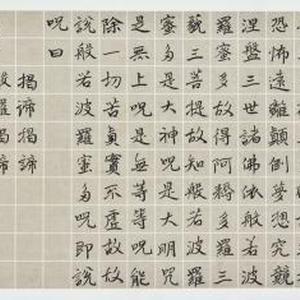 恐怖遠離顛倒夢想究竟
涅盤三世諸佛依般若波
羅蜜多故得阿耨多羅三
藐三菩提故知般若波羅
蜜多是大神咒是大明咒
是無上呪是無等等呪能
除一切苦真實不虛故故
說般若波羅蜜多呪即說
呪曰
揭諦揭諦
般羅揭諦